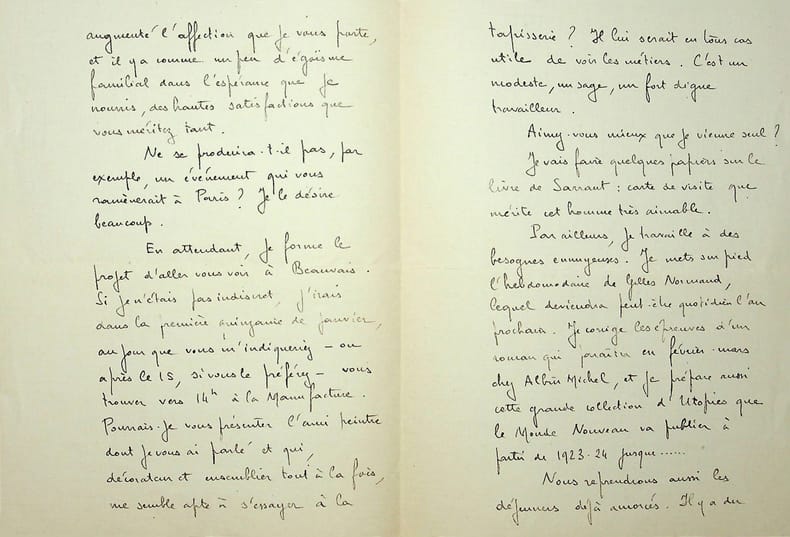 augmenté l'affection que je vous porte,
et il y a comme un peu d'égoïsme
familial dans l'espérance que je
nourris, des hautes satisfactions que
vous méritez tant.
Ne se produira-t-il pas, par
exemple, un événement qui vous
ramènerait à Paris ? Je le désire
beaucoup.
En attendant, je forme le
projet d'aller vous voir à Beauvais.
Si je n'étais pas indiscret, j'irais
dans la première quinzaine de janvier,
au jour que vous m'indiqueriez – ou
après le 15, si vous le préférez – vous
trouver vers 14h à la Manufacture.
Pourrais-je vous présenter l'ami peintre
dont je vous ai parlé et qui,
décorateur et ensemblier tout à la fois,
me semble apte à s'essayer à la
tapisserie ? Il lui serait en tous cas
utile de voir les métiers. C'est un
modeste, un sage, un fort digne
travailleur.
Aimez-vous mieux que je vienne seul ?
Je vais faire quelques papiers sur le
livre de Sarraut : carte de visite que
mérite cet homme très aimable.
Par ailleurs, je travaille à des
besognes ennuyeuses. Je mets sur pied
l'hebdomadaire de Gilles Normand,
lequel deviendra peut-être quotidien l'an
prochain. Je corrige les épreuves d'un
roman qui paraîtra en février-mars
chez Albin Michel, et je prépare aussi
cette grande collection d'Utopies que
le Monde Nouveau va publier à
partir de 1923-24 jusque......
Nous reprendrons aussi les
déjeuners déjà amorcés. Il y a du